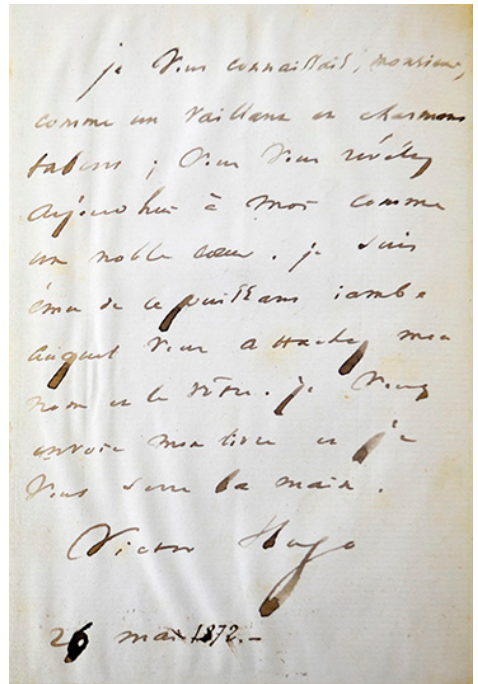 je vous connaissais, monsieur,
comme un vaillant et charmant
talent ; vous vous révélez
aujourd'hui à moi comme
un noble cœur. je suis
ému de ce puissant iambe
auquel vous attachez mon
nom et le vôtre. je vous
envoie mon livre et je
vous serre la main.
Victor Hugo
26 mai 1872.–